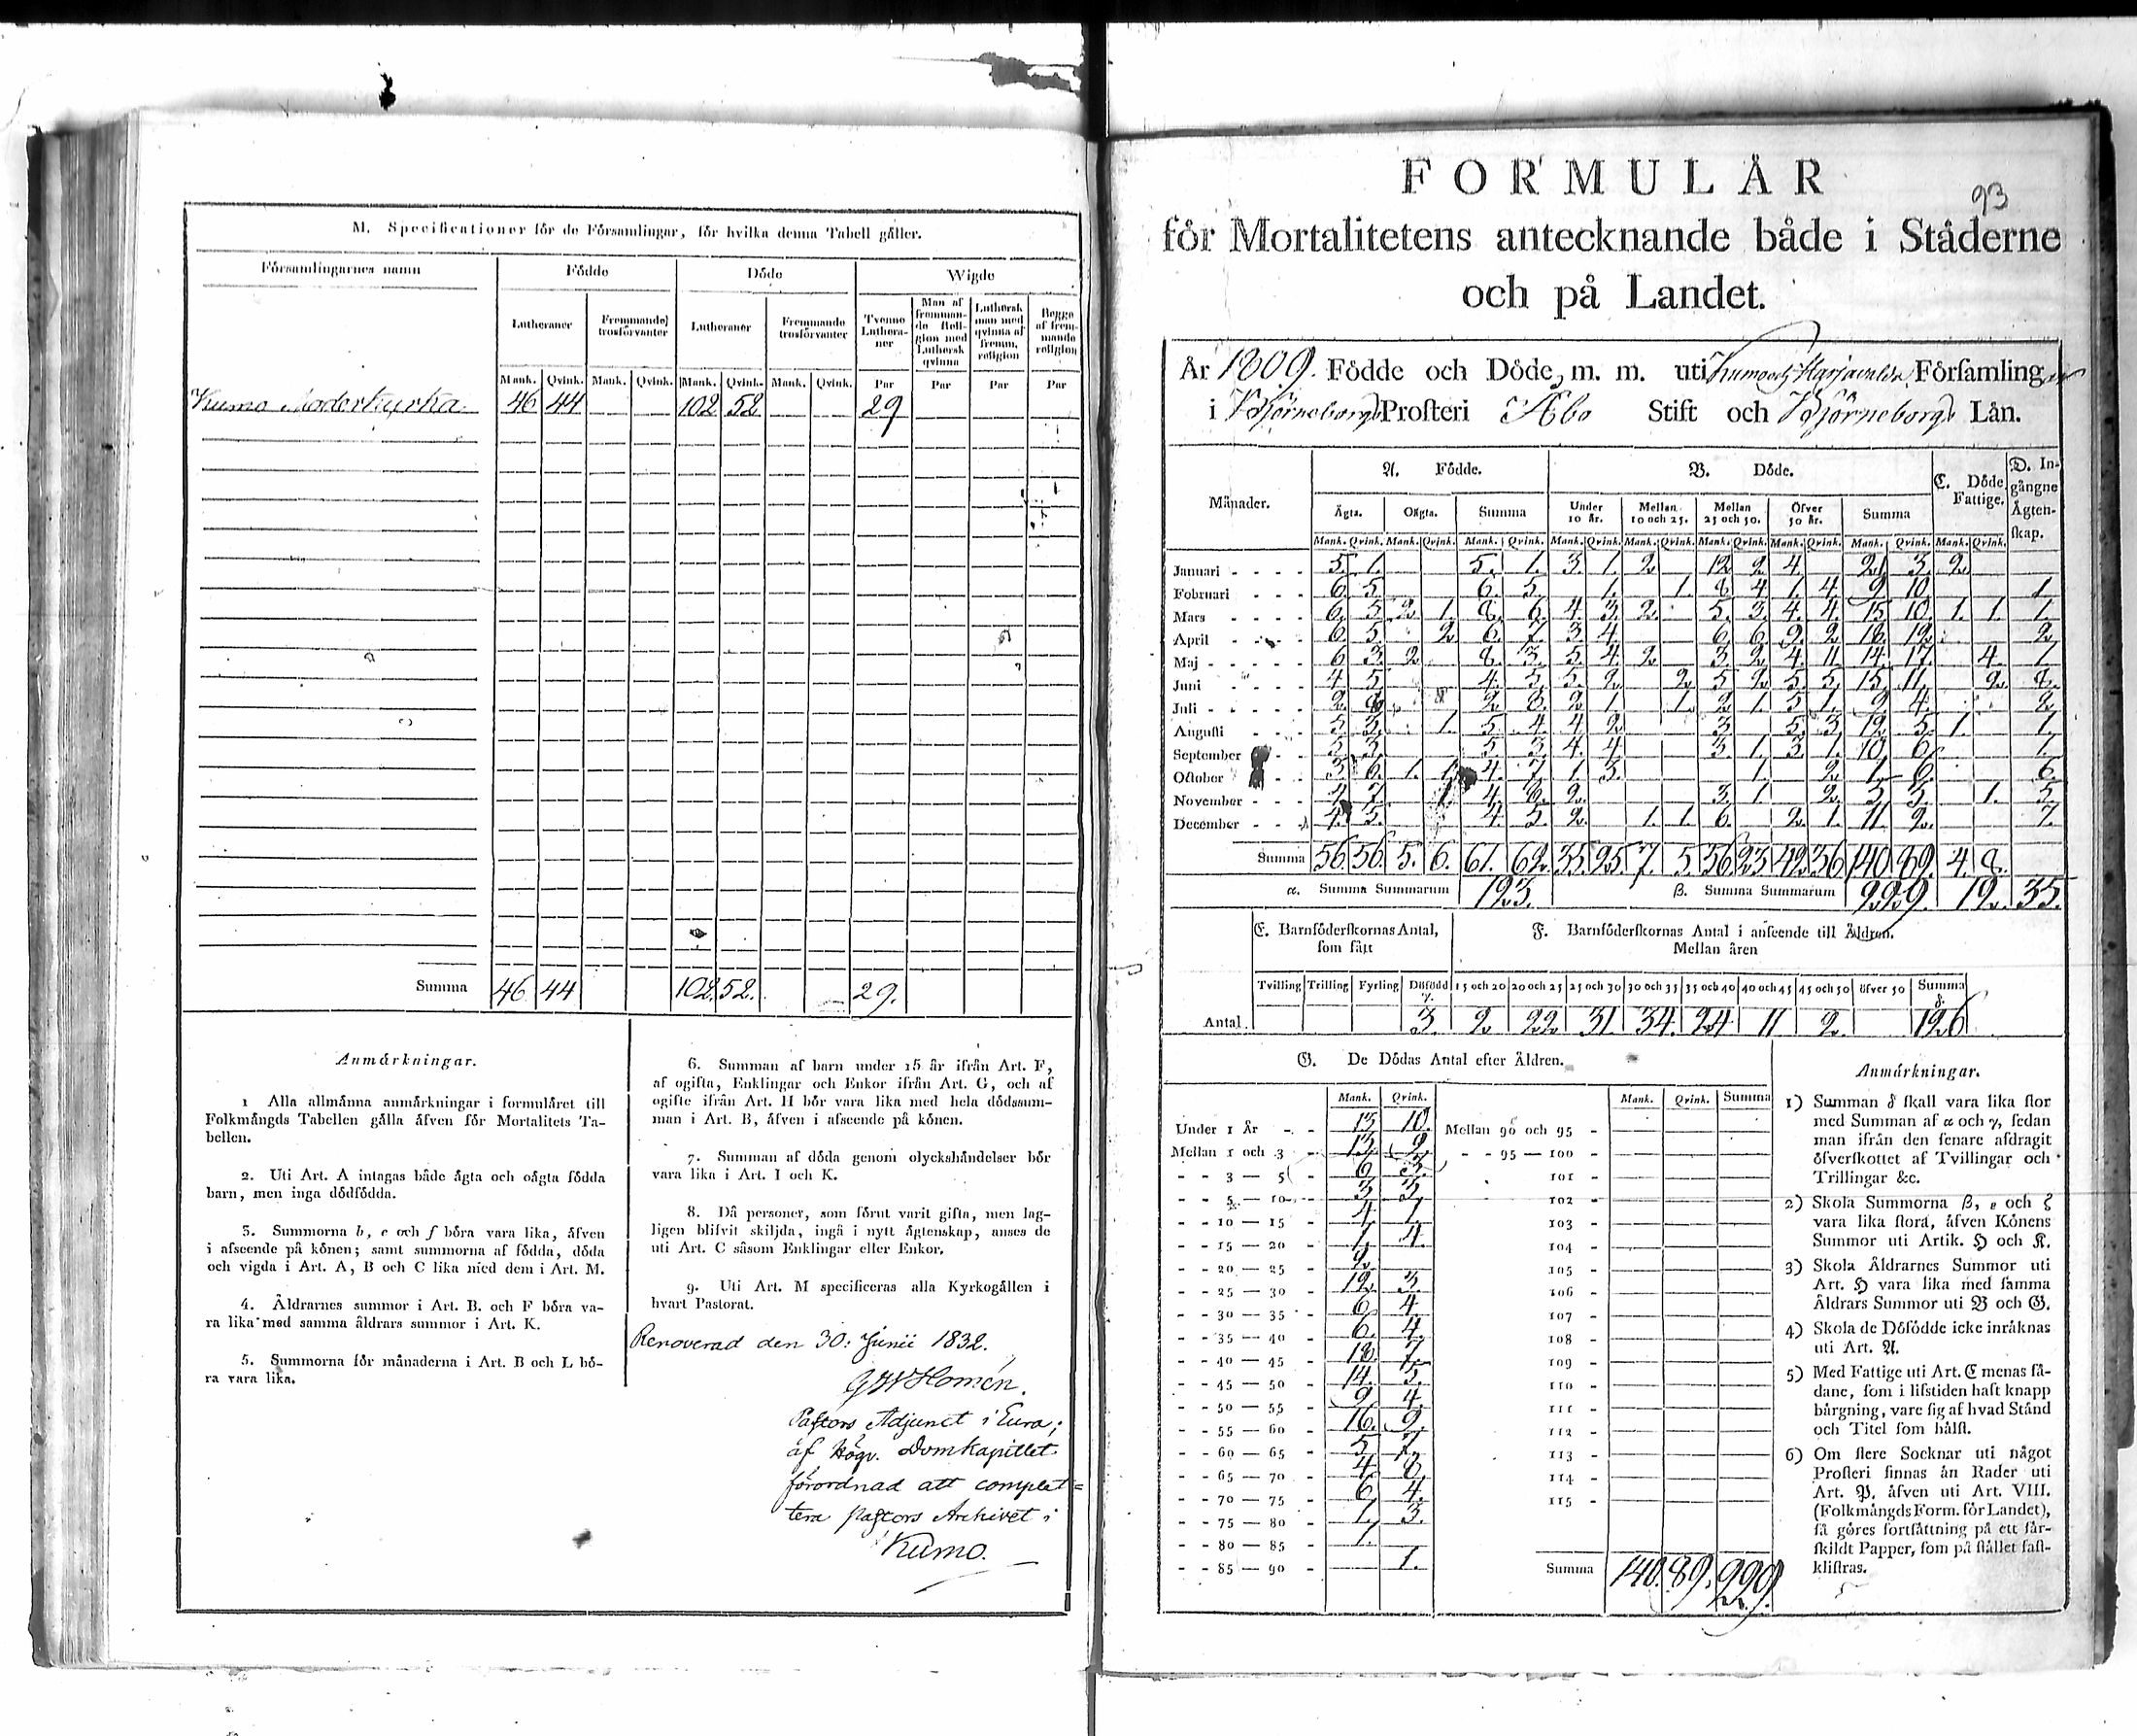 M. Specificationer för de Församlingar, för hvilka denna Tabell gäller.
Församlingarnes namn Födde Döde Wigde
Lutheraner Fremmande trosförvanter Lutheraner Fremmande trosförvanter Tvenne Lutheraner Man af fremmande Religion med Luthersk qvinna Luthersk man med qvinna af fremm. religion Begge af fremmande religion
Mank. Qvink. Mank. Qvink. Mank. Qvink. Mank. Qvink. Par Par Par Par
Kumo Moderkyrka 46 44 102 52 29
Summa 46 44 102. 52. 29.
Anmärkningar.
1 Alla allmänna anmärkningar i formuläret till
Folkmängds Tabellen gälla äfven för Mortalitets Ta-
bellen.
2. Uti Art. A intagas både ägta och oägta födda
barn, men inga dödfödda.
3. Summorna b, e och f böra vara lika, äfven
i afseende på könen; samt summorna af födda, döda
och vigda i Art. A, B och C lika med dem i Art. M.
4. Åldrarnes summor i Art. B. och F böra va-
ra lika med samma åldrars summor i Art. K.
5. Summorna för månaderna i Art. B och L bö-
ra vara lika.
6. Summan af barn under 15 år ifrån Art. F,
af ogifta, Enklingar och Enkor ifrån Art. G, och af
ogifte ifrån Art. H bör vara lika med hela dödssum-
man i Art. B, äfven i afseende på könen.
7. Summan af döda genom olyckshändelser bör
vara lika i Art. I och K.
8. Då personer, som förut varit gifta, men lag-
ligen blifvit skiljda, ingå i nytt ägtenskap, anses de
uti Art. C såsom Enklingar eller Enkor.
9. Uti Art. M specificeras alla Kyrkogällen i
hvart Pastorat.
Renoverad den 30: Junii 1832.
G W Homén.
Pastors Adjunct i Eura;
af Högv. Domkapitlet
förordnad att complet=
tera pastors Archivet i
Kumo.
93
FORMULÄR
för Mortalitetens antecknande både i Städerne
och på Landet.
År 1809. Födde och Döde, m. m. uti Kumo och Harjavalda Församling
i Björneborgs Prosteri Åbo Stift och Björneborgs Län.
Månader. A. Födde. B. Döde. C. Döde Fattige. D. Ingångne Ägtenskap.
Ägta. Oägta. Summa Under 10 år. Mellan 10 och 25. Mellan 25 och 50. Öfver 50 år. Summa
Mank. Qvink. Mank. Qvink. Mank. Qvink. Mank. Qvink. Mank. Qvink. Mank. Qvink. Mank. Qvink. Mank. Qvink. Mank. Qvink.
Januari 5. 1. 5. 1. 3. 1. 2 12 2 4 21 3 2
Februari 6. 5 6. 5. 1. 1. 8 4 1. 4 9 10 1
Mars 6. 5 2 1. 8. 6 4 3. 2. 5. 3. 4. 4. 15 10. 1. 1. 1.
April 6 5 2 6. 7. 3 4 6 6 2. 16. 12. 2
Maj 6 3 2 8. 3. 5. 4. 2 3. 2 4. 11 14. 17. 4. 7
Juni 4 5 4. 5 5. 2. 2 5 2 5 5. 15 11. 2.
Juli 2 8 2 8. 2 1 1. 2 1 5 1. 9 4. 2
Augusti 5 3. 1. 5. 4 4 2 3 5. 3 12 5. 1. 1
September 5 3. 5 3 4. 4 3 1. 3 1. 10 6. 1.
October 3 6. 1. 1 4. 7. 1 3. 1 2. 1. 6. 6
November 4 7. 1 4 8. 2. 3. 1 2. 5 3. 1. 5
December 4. 5. 4. 5 2. 1. 1. 6. 2. 1. 11. 2. 7.
Summa 56. 56. 5. 6. 61. 62. 35. 25. 7. 5. 56. 23 42. 36 140. 89. 4. 8.
α. Summa Summarum 123. β. Summa Summarum 229. 12. 35.
E. Barnföderskornas Antal, som fått F. Barnföderskornas Antal i anseende till Åldren. Mellan åren
Tvilling Trilling Fyrling Dödfödd γ. 15 och 20 20 och 25 25 och 30 30 och 35 35 och 40 40 och 45 45 och 50 öfver 50 Summa δ.
Antal. 3. 2. 22 31. 34. 24 11 2. 126
G. De Dödas Antal efter Åldren.
Mank. Qvink. Mank. Qvink. Summa
Under 1 År 10. Mellan 90 och 95
Mellan 1 och 3 13. 9. 95 — 100
3 — 5 3. 101
5 — 10 3 3. 102
10 — 15 4 1. 103
15 — 20 1 4. 104
20 — 25 2. 105
25 — 30 12. 3. 106
30 — 35 6 4 107
35 — 40 6. 4. 108
40 — 45 18. 7. 109
45 — 50 14. 5. 110
50 — 55 9 4. 111
55 — 60 16. 9. 112
60 — 65 5 7. 113
65 — 70 4. 8. 114
70 — 75 6 4. 115
75 — 80 1. 3.
80 — 85 1.
85 — 90 1. Summa 140. 89. 229.
Anmärkningar.
1) Summan δ skall vara lika stor
med Summan af α och γ, sedan
man ifrån den senare afdragit
öfverskottet af Tvillingar och
Trillingar &c.
2) Skola Summorna β, ε och ζ
vara lika stora, äfven Könens
Summor uti Artik. H och K.
3) Skola Åldrarnes Summor uti
Art. H vara lika med samma
Åldrars Summor uti B och G.
4) Skola de Döfödde icke inräknas
uti Art. A.
5) Med Fattige uti Art. C menas så-
dane, som i lifstiden haft knapp
bärgning, vare sig af hvad Stånd
och Titel som hälst.
6) Om flere Socknar uti något
Prosteri finnas än Rader uti
Art. P. äfven uti Art. VIII.
(Folkmängds Form. för Landet),
så göres fortsättning på ett sär-
skildt Papper, som på stället fast-
klistras.